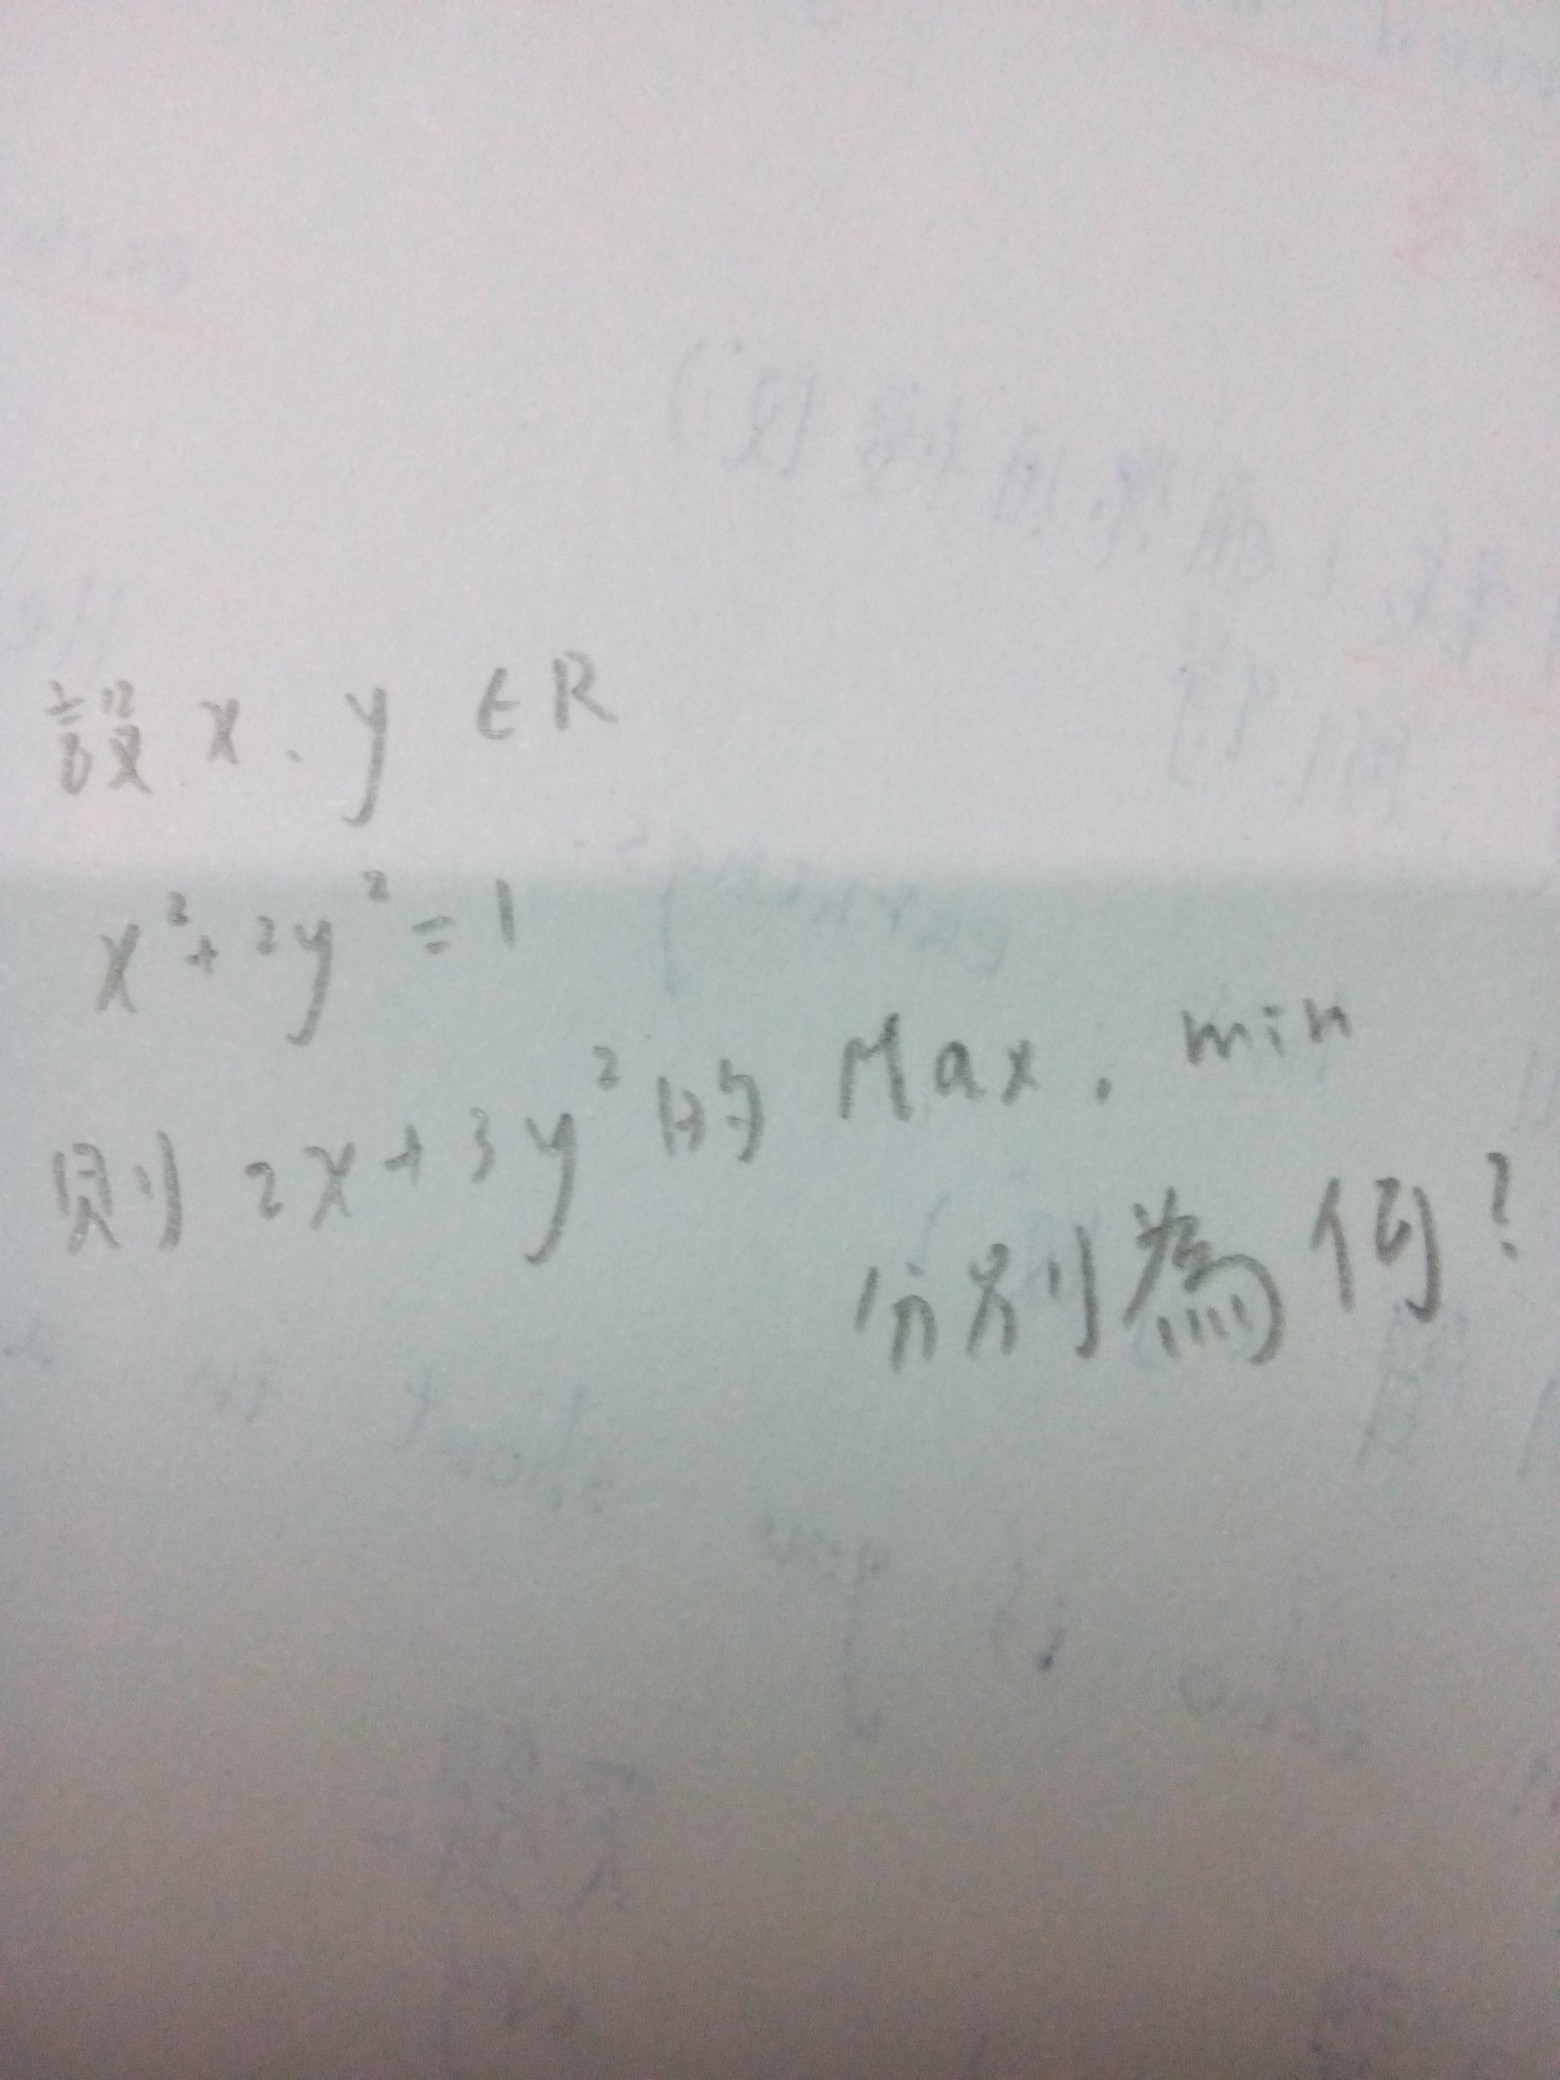 設 x、y ∈ R
x²+2y²=1
則 2x+3y²的 Max、min
分別為何?